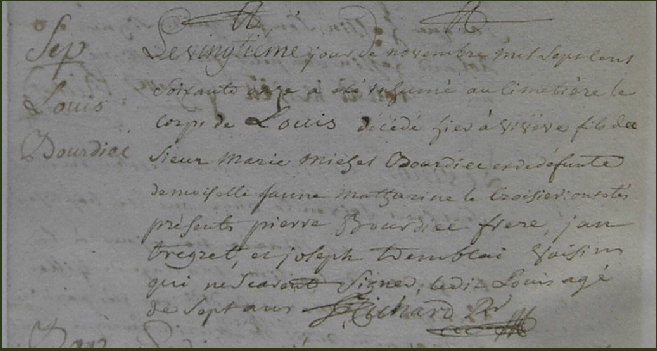 Sep
Louis
Bourdiec
Le vingtieme jour de novembre mil sept cens
soixante onze a été inhumé au cimetière le
corps de Louis décédé hier à fils de
Sieur Marie Michel Bourdiec et de défunte
demoiselle Janne Mathurine le Croisier ont etés
présents pierre Bourdiec frere, jan
tregret, et joseph tremblai voisins
qui ne scavent signer, ledit Louis agé
de sept ans Richard Rr